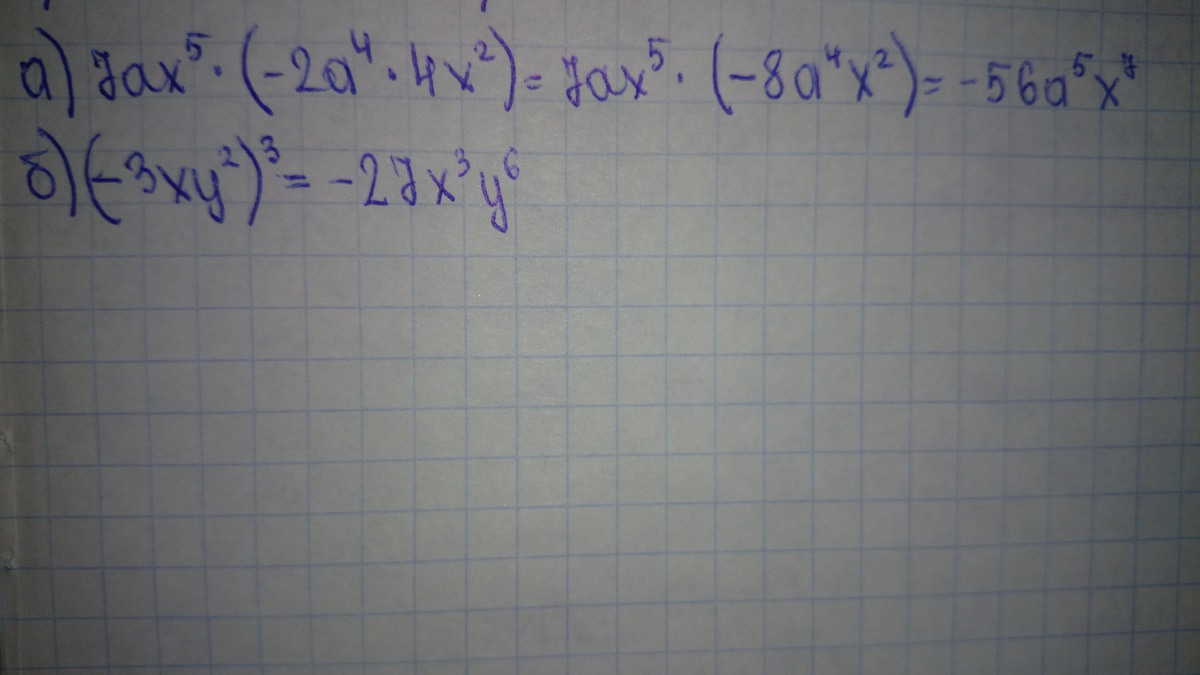 а) 7ax⁵·(-2a⁴·4x²)= 7ax⁵·(-8a⁴x²)= -56a⁵x⁷
б) (-3xy²)³= -27x³y⁶